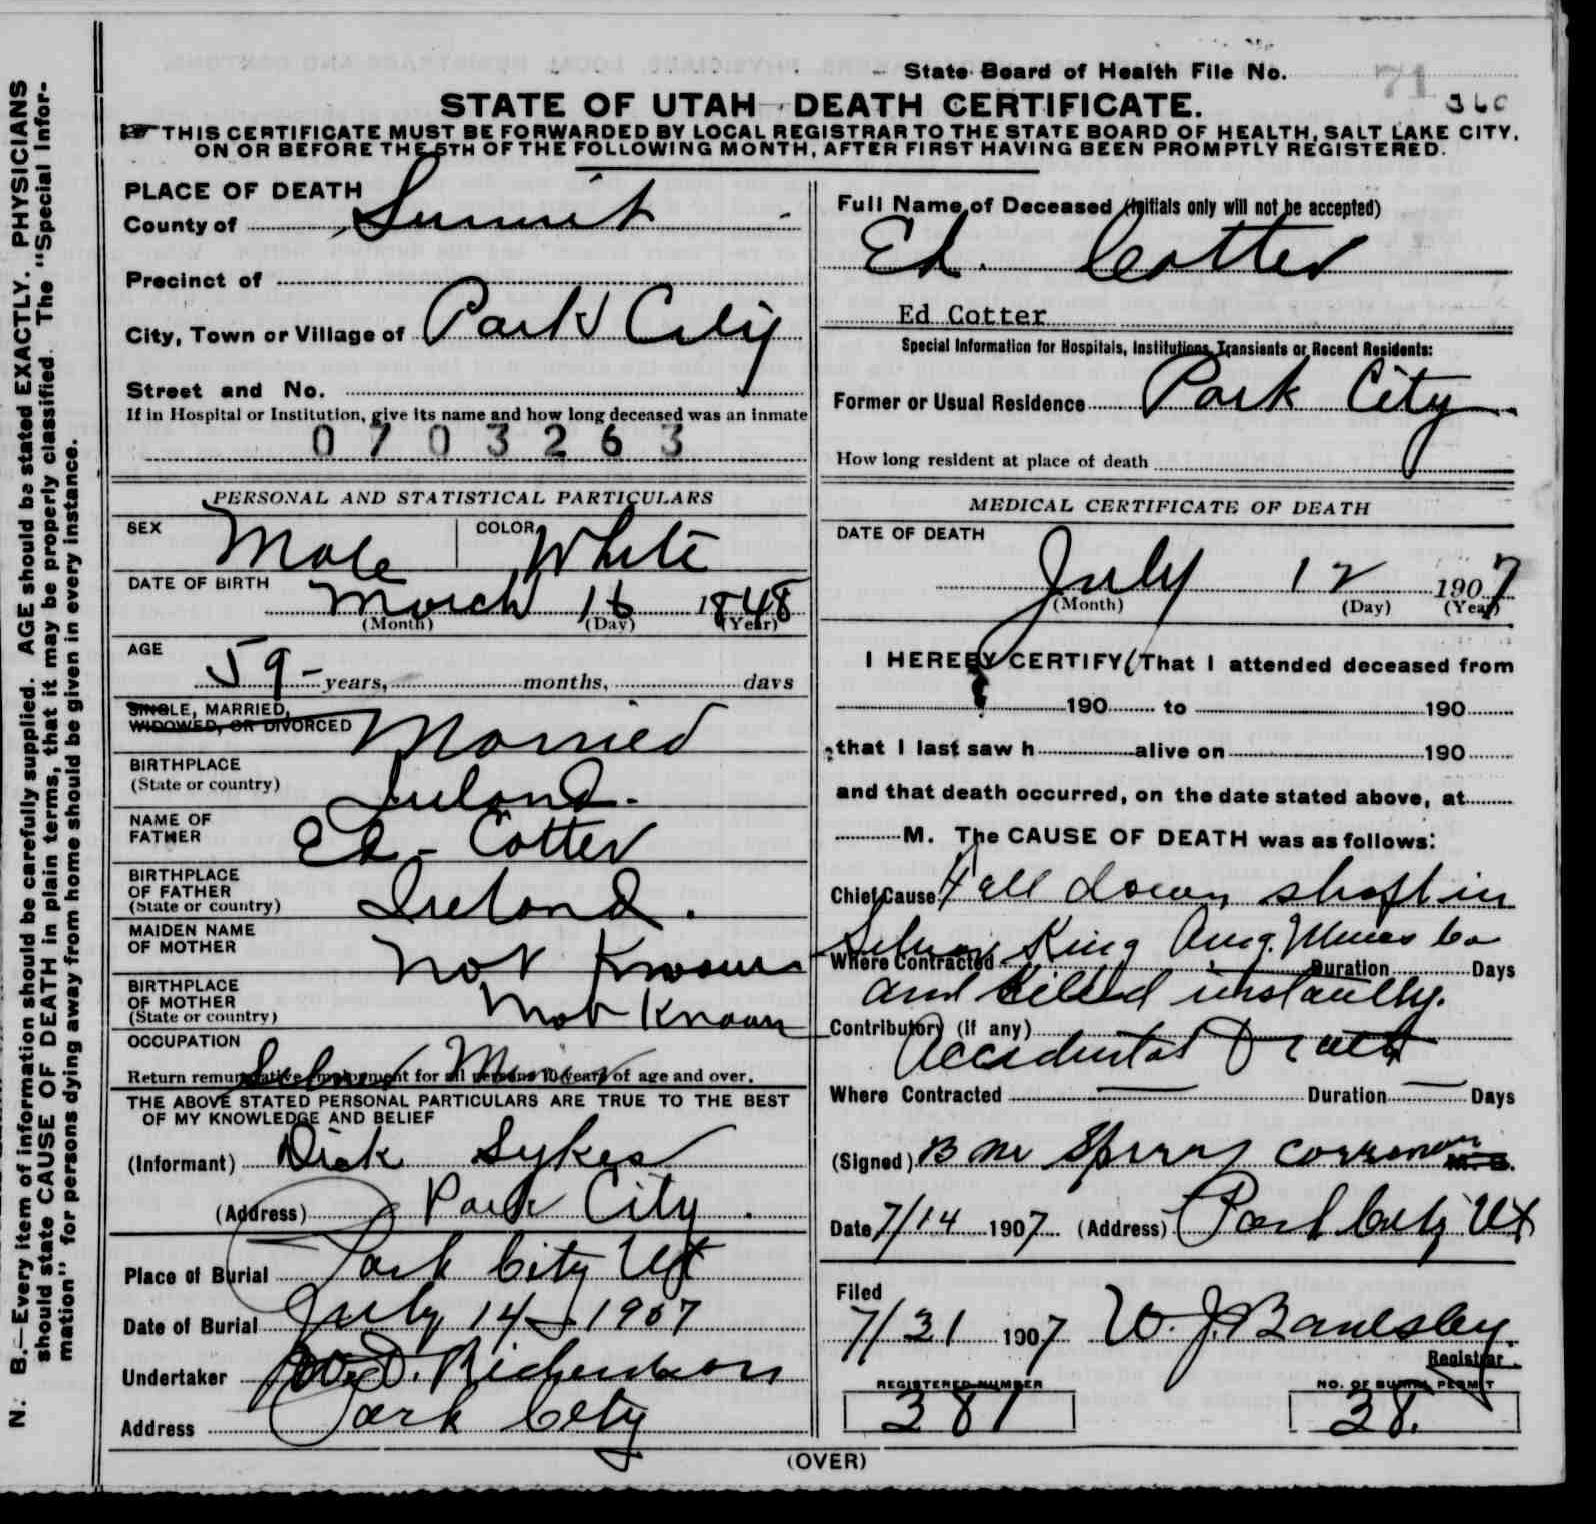 N. B.—Every item of information should be carefully supplied. AGE should be stated EXACTLY. PHYSICIANS
should state CAUSE OF DEATH in plain terms, that it may be properly classified. The "Special Infor-
mation" for persons dying away from home should be given in every instance.
State Board of Health File No. 71
360
STATE OF UTAH - DEATH CERTIFICATE.
THIS CERTIFICATE MUST BE FORWARDED BY LOCAL REGISTRAR TO THE STATE BOARD OF HEALTH, SALT LAKE CITY,
ON OR BEFORE THE 5TH OF THE FOLLOWING MONTH, AFTER FIRST HAVING BEEN PROMPTLY REGISTERED.
PLACE OF DEATH
County of Summit
Precinct of
City, Town or Village of Park City
Street and No.
If in Hospital or Institution, give its name and how long deceased was an inmate
0703263
PERSONAL AND STATISTICAL PARTICULARS
SEX Male COLOR White
DATE OF BIRTH
March 16 1848
(Month) (Day) (Year)
AGE
59 - years, months, days
SINGLE, MARRIED,
WIDOWED, OR DIVORCED Married
BIRTHPLACE
(State or country) Ireland.
NAME OF
FATHER Ed - Cotter
BIRTHPLACE
OF FATHER
(State or country) Ireland.
MAIDEN NAME
OF MOTHER Not Known
BIRTHPLACE
OF MOTHER
(State or country) Not Known
OCCUPATION
Silver Miner
Return remunerative employment for all persons 10 years of age and over.
THE ABOVE STATED PERSONAL PARTICULARS ARE TRUE TO THE BEST
OF MY KNOWLEDGE AND BELIEF
(Informant) Dick Sykes
(Address) Park City.
Place of Burial Park City Ut
Date of Burial July 14 1907
Undertaker Richardson
Address Park City
Full Name of Deceased (Initials only will not be accepted)
Ed. Cotter
Ed Cotter
Special Information for Hospitals, Institutions, Transients or Recent Residents:
Former or Usual Residence Park City
How long resident at place of death
MEDICAL CERTIFICATE OF DEATH
DATE OF DEATH
July 12 1907
(Month) (Day) (Year)
I HEREBY CERTIFY, That I attended deceased from
190 to 190
that I last saw h alive on 190
and that death occurred, on the date stated above, at
M. The CAUSE OF DEATH was as follows:
Chief Cause Fell down shaft in
Silver King Mines Co
Where Contracted Duration Days
and killed instantly.
Contributory (if any)
Accidental Death
Where Contracted — Duration — Days
(Signed) B Mc Sperry coroner M. D.
Date 7/14 1907 (Address) Park City Ut
Filed
7/31 1907 W. J. Registrar.
REGISTERED NUMBER
381
NO. OF BURIAL PERMIT
38.
(OVER)